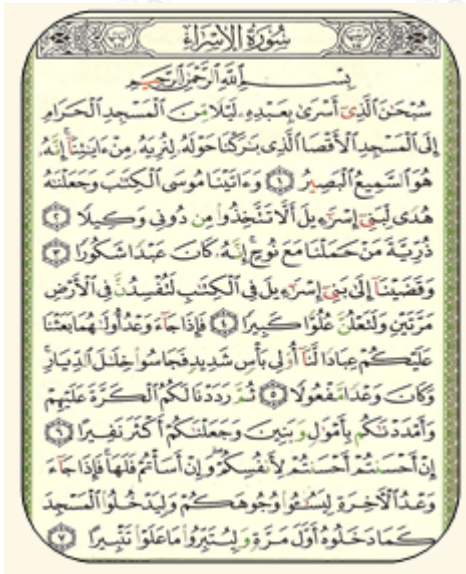 سُورَةُ الإِسْرَاءِ
بِسْمِ ٱللَّهِ ٱلرَّحْمَٰنِ ٱلرَّحِيمِ
سُبْحَٰنَ ٱلَّذِىٓ أَسْرَىٰ بِعَبْدِهِۦ لَيْلًا مِّنَ ٱلْمَسْجِدِ ٱلْحَرَامِ
إِلَى ٱلْمَسْجِدِ ٱلْأَقْصَا ٱلَّذِى بَٰرَكْنَا حَوْلَهُۥ لِنُرِيَهُۥ مِنْ ءَايَٰتِنَآ إِنَّهُۥ
هُوَ ٱلسَّمِيعُ ٱلْبَصِيرُ ۝١ وَءَاتَيْنَا مُوسَى ٱلْكِتَٰبَ وَجَعَلْنَٰهُ
هُدًى لِّبَنِىٓ إِسْرَٰٓءِيلَ أَلَّا تَتَّخِذُوا۟ مِن دُونِى وَكِيلًا ۝٢
ذُرِّيَّةَ مَنْ حَمَلْنَا مَعَ نُوحٍ إِنَّهُۥ كَانَ عَبْدًا شَكُورًا ۝٣
وَقَضَيْنَآ إِلَىٰ بَنِىٓ إِسْرَٰٓءِيلَ فِى ٱلْكِتَٰبِ لَتُفْسِدُنَّ فِى ٱلْأَرْضِ
مَرَّتَيْنِ وَلَتَعْلُنَّ عُلُوًّا كَبِيرًا ۝٤ فَإِذَا جَآءَ وَعْدُ أُولَىٰهُمَا بَعَثْنَا
عَلَيْكُمْ عِبَادًا لَّنَآ أُو۟لِى بَأْسٍ شَدِيدٍ فَجَاسُوا۟ خِلَٰلَ ٱلدِّيَارِ
وَكَانَ وَعْدًا مَّفْعُولًا ۝٥ ثُمَّ رَدَدْنَا لَكُمُ ٱلْكَرَّةَ عَلَيْهِمْ
وَأَمْدَدْنَٰكُم بِأَمْوَٰلٍ وَبَنِينَ وَجَعَلْنَٰكُمْ أَكْثَرَ نَفِيرًا ۝٦
إِنْ أَحْسَنتُمْ أَحْسَنتُمْ لِأَنفُسِكُمْ وَإِنْ أَسَأْتُمْ فَلَهَا فَإِذَا جَآءَ
وَعْدُ ٱلْءَاخِرَةِ لِيَسُۥٓـُٔوا۟ وُجُوهَكُمْ وَلِيَدْخُلُوا۟ ٱلْمَسْجِدَ
كَمَا دَخَلُوهُ أَوَّلَ مَرَّةٍ وَلِيُتَبِّرُوا۟ مَا عَلَوْا۟ تَتْبِيرًا ۝٧